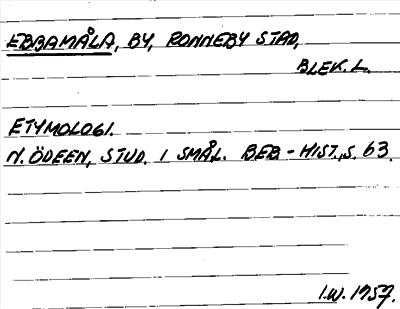 EBBAMÅLA, BY, RONNEBY STAD,
BLEK. L.
ETYMOLOGI.
N. ÖDEEN, STUD. I SMÅL. BEB. - HIST., S. 63.
I.W. 1957.